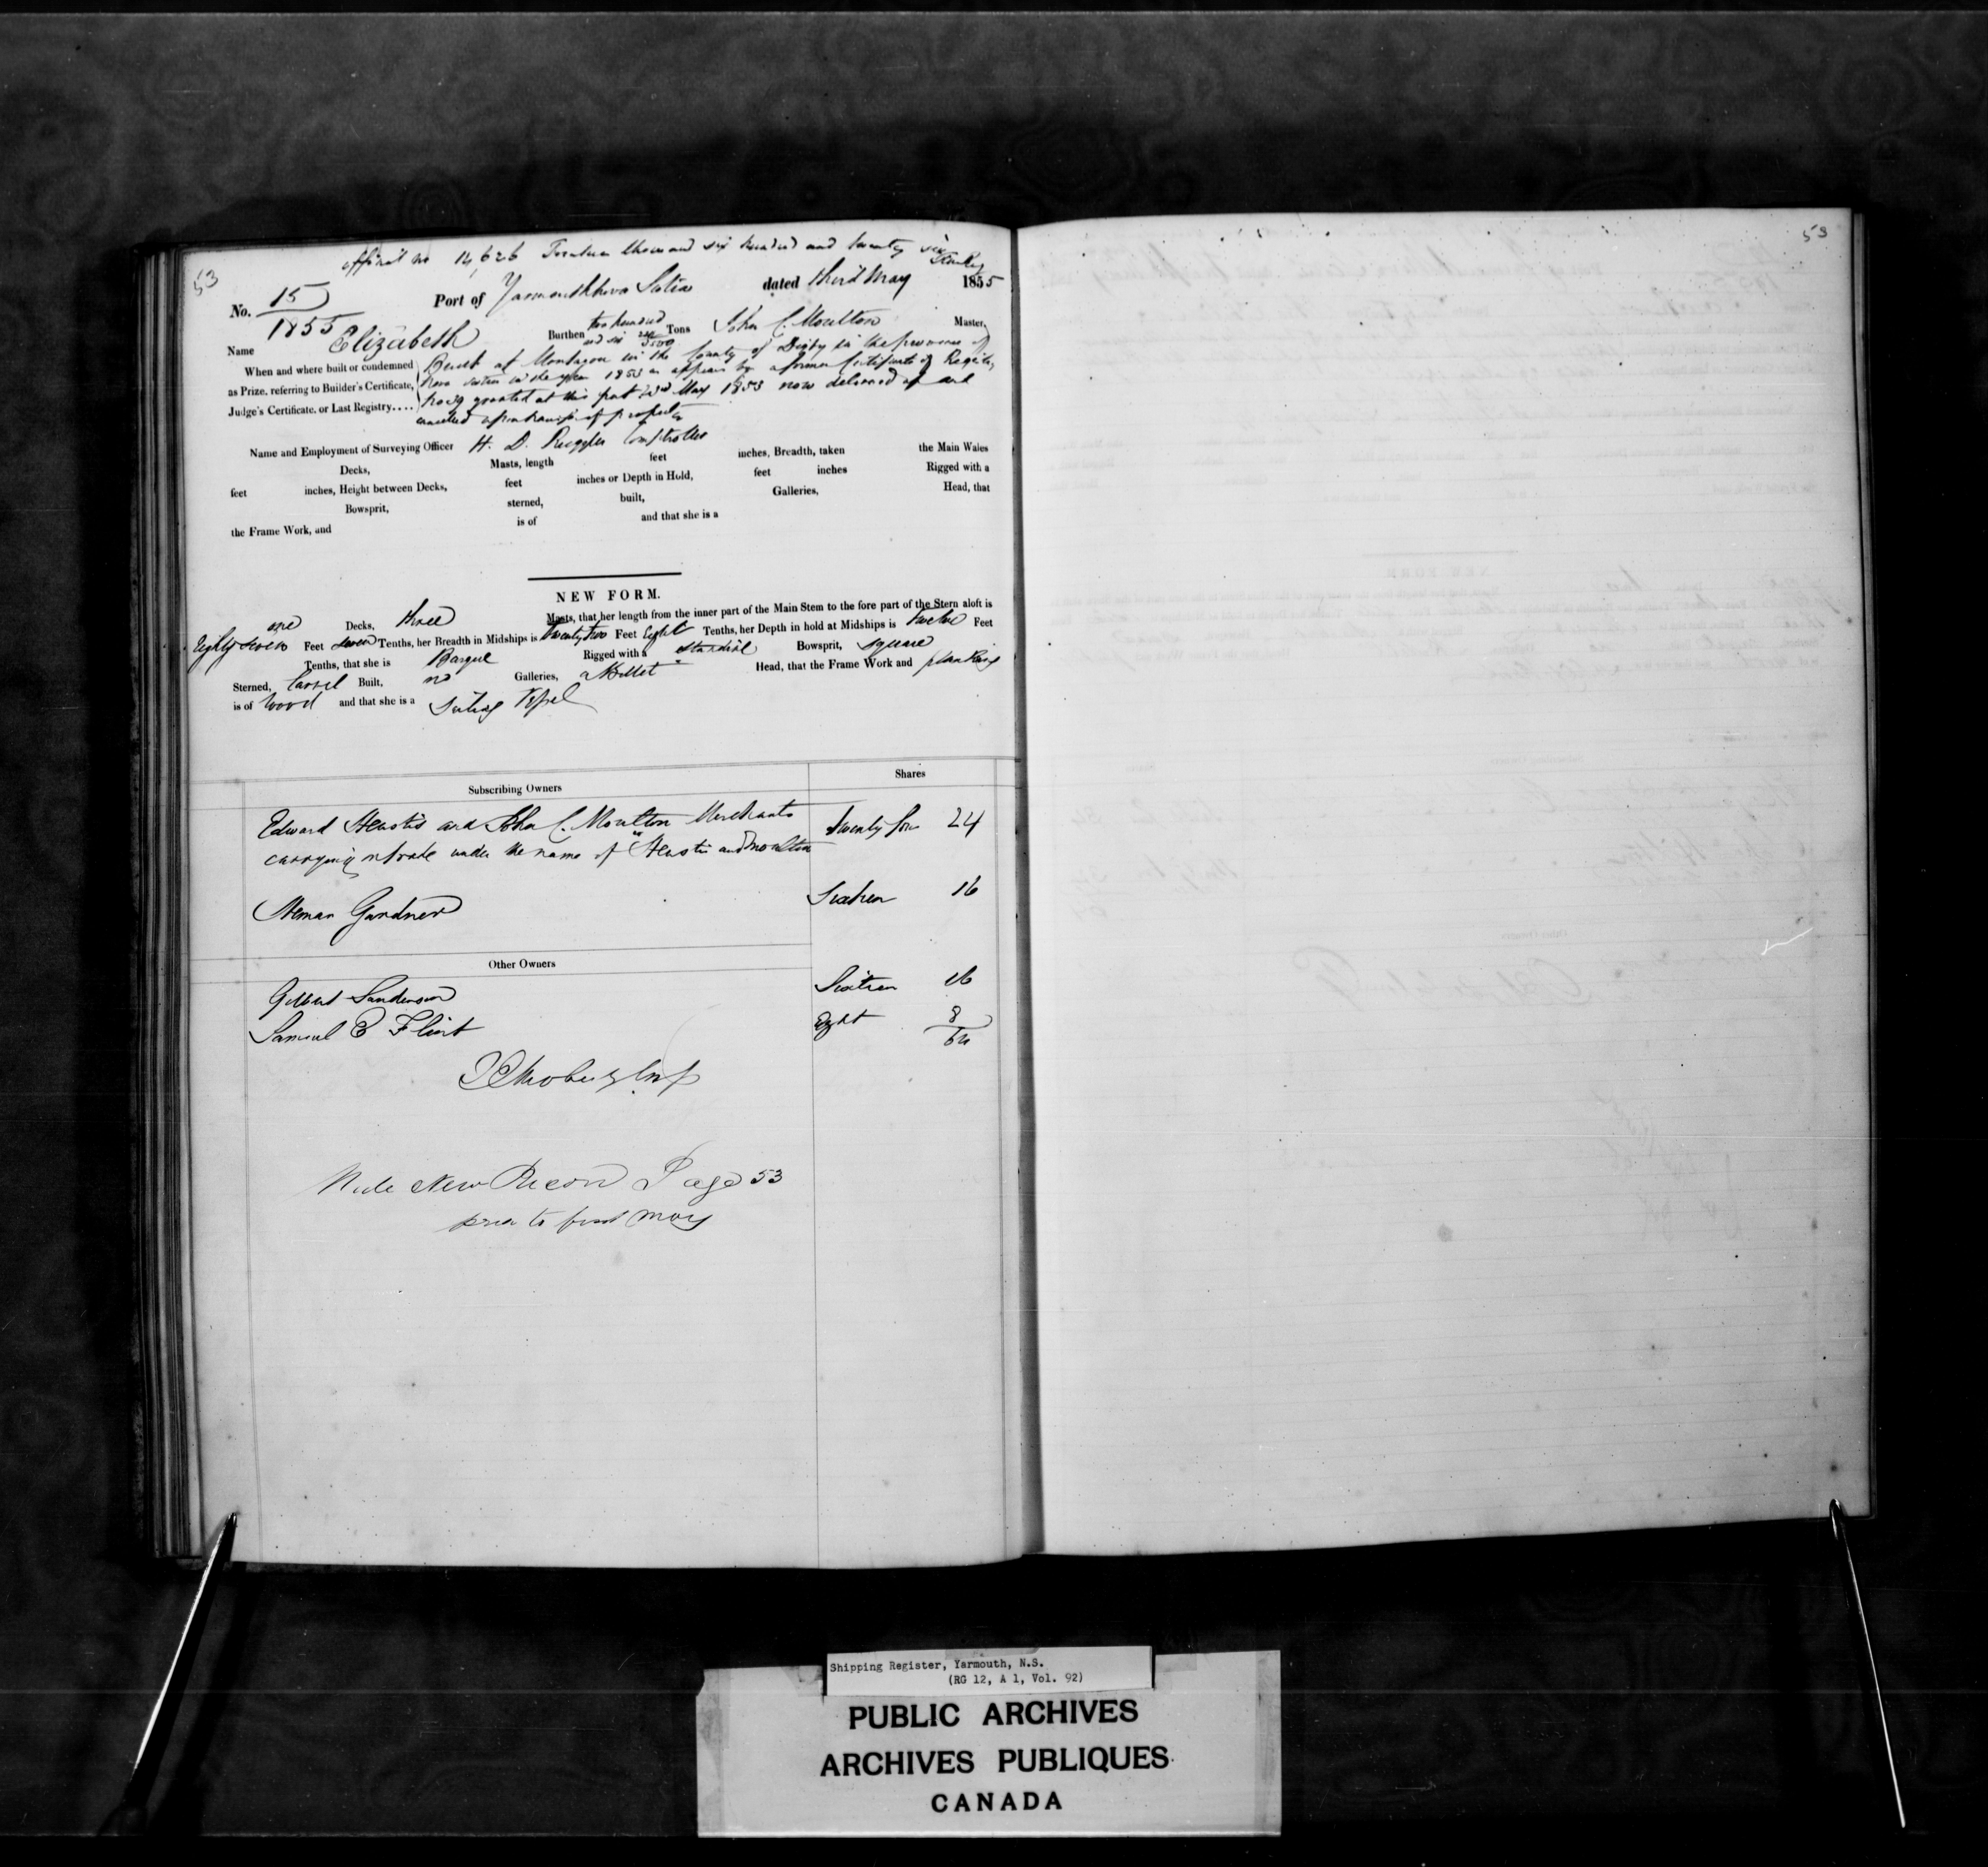 official no 14,626 Fourteen thousand six hundred and twenty six
53
53
No. 15 Port of Yarmouth Nova Scotia dated third May 1855
1855
Name Elizabeth Burthen two hundred and six Tons John C. Moulton Master,
When and where built or condemned Built at Montagan in the County of Digby in the province of
as Prize, referring to Builder's Certificate, Nova Scotia in the year 1853 as appears by a former Certificate of Registry
Judge's Certificate, or Last Registry.... No 29 granted at this port May 1853 now delivered up and
cancelled upon transfer of property
Name and Employment of Surveying Officer H. D. Ruggles Comptroller
Decks, Masts, length feet inches, Breadth, taken the Main Wales
feet inches, Height between Decks, feet inches or Depth in Hold, feet inches Rigged with a
Bowsprit, sterned, built, Galleries, Head, that
the Frame Work, and is of and that she is a
NEW FORM.
one Decks, three Masts, that her length from the inner part of the Main Stem to the fore part of the Stern aloft is
Eighty seven Feet seven Tenths, her Breadth in Midships is twenty two Feet Eight Tenths, her Depth in hold at Midships is twelve Feet
Tenths, that she is Barque Rigged with a standing Bowsprit, square
Sterned, Carvel Built, no Galleries, a Billet Head, that the Frame Work and planking
is of Wood and that she is a Sailing Vessel
Subscribing Owners Shares
Edward Heustis and John C. Moulton Merchants twenty four 24
carrying on trade under the name of "Heustis and Moulton
Heman Gardner Sixteen 16
Other Owners
Gilbert Sanderson Sixteen 16
Samuel E Flint Eight 8
64
Vide New Record Page 53
prior to first May
Shipping Register, Yarmouth, N.S.
(RG 12, A 1, Vol. 92)
PUBLIC ARCHIVES
ARCHIVES PUBLIQUES
CANADA